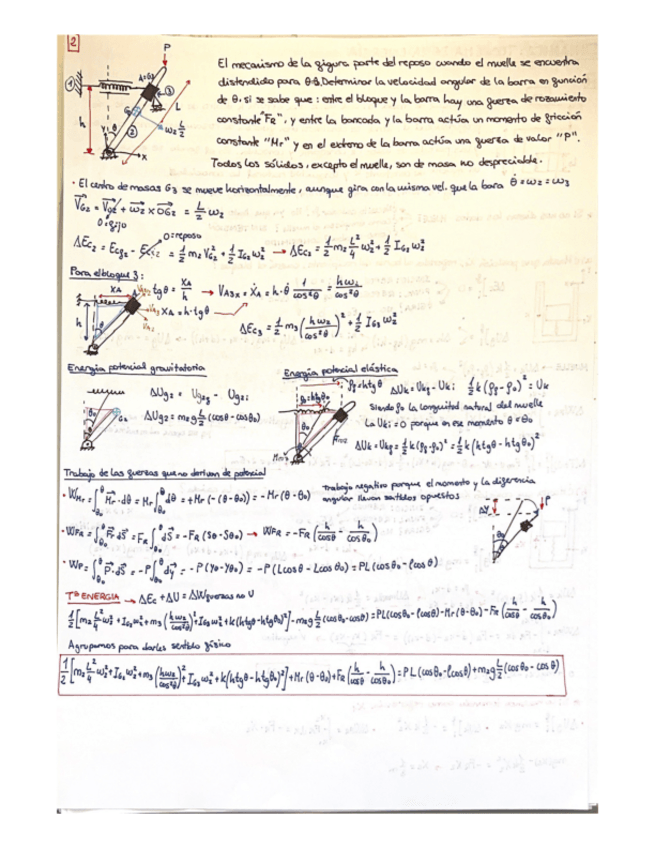 2
El mecanismo de la figura parte del reposo cuando el muelle se encuentra
distendido para θ=θ₀. Determinar la velocidad angular de la barra en función
de θ, si se sabe que: entre el bloque y la barra hay una fuerza de rozamiento
constante "FR", y entre la bancada y la barra actúa un momento de fricción
constante "Mr" y en el extremo de la barra actúa una fuerza de valor "P".
Todos los sólidos, excepto el muelle, son de masa no despreciable.
· El centro de masas G₃ se mueve horizontalmente, aunque gira con la misma vel. que la barra θ̇ = ω₂ = ω₃
0=fijo
0=reposo
ΔEc₂ = Ecf₂ - Eci₂ = 1/2 m₂ VG₂² + 1/2 IG₂ω₂² → ΔEc₂ = 1/2 m₂ L²/4 ω₂² + 1/2 IG₂ω₂²
Para el bloque 3:
tgθ = XA/h → VA3x = ẊA = h·θ̇ 1/cos²θ = hω₂/cos²θ
XA = h·tgθ
ΔEc₃ = 1/2 m₃ (hω₂/cos²θ)² + 1/2 IG₃ω₂²
Energía potencial gravitatoria
Energía potencial elástica
ΔUg₂ = Ugf₂ - Ug₂i
ΔUg₂ = m₂g L/2 (cosθ - cosθ₀)
siendo ρ₀ la longitud natural del muelle
La Uki = 0 porque en ese momento θ = θ₀
ΔUk = Ukf = 1/2 k(ρf-ρ₀)² = 1/2 k(htgθ - htgθ₀)²
Trabajo de las fuerzas que no derivan de potencial
Trabajo negativo porque el momento y la diferencia
angular llevan sentidos opuestos
· WFR = ∫ Fr·dS = FR ∫ dS = -FR (Sθ - Sθ₀) → WFR = -FR (h/cosθ - h/cosθ₀)
· WP = ∫ P·dS = -P ∫ dy = -P(Yθ - Yθ₀) = -P(Lcosθ - Lcosθ₀) = PL(cosθ₀ - cosθ)
Tª ENERGIA → ΔEc + ΔU = ΔWfuerzas no U
1/2 [m₂ L²/4 ω₂² + IG₂ω₂² + m₃ (hω₂/cos²θ)² + IG₃ω₂² + k(htgθ - htgθ₀)²] - m₂g L/2 (cosθ₀ - cosθ) = PL(cosθ₀ - cosθ) - Mr(θ - θ₀) - FR (h/cosθ - h/cosθ₀)
Agrupamos para darles sentido físico
1/2 [m₂ L²/4 ω₂² + IG₂ω₂² + m₃ (hω₂/cos²θ)² + IG₃ω₂² + k(htgθ - htgθ₀)²] + Mr(θ - θ₀) + FR (h/cosθ - h/cosθ₀) = PL(cosθ₀ - cosθ) + m₂g L/2 (cosθ₀ - cosθ)